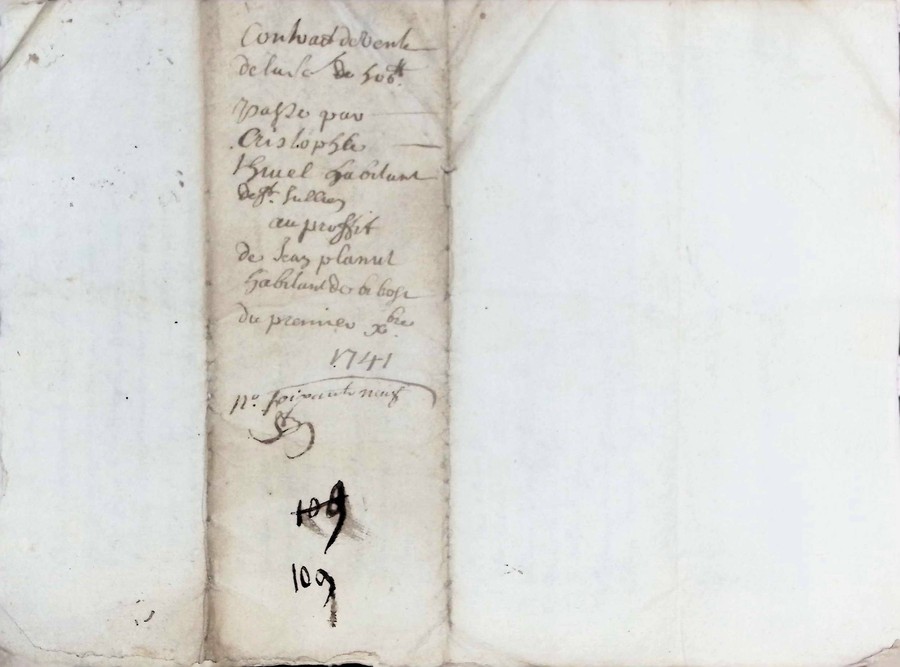 Contract de vente
de la se de 400ᵗᵗ
passe par
Cristophle
habitant
de sᵗ. Jullien
au proffit
de Jean planut
habitant de la
du premier xbre
1741
nº. soixante neuf
109
109